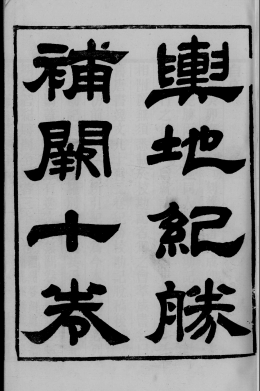 輿地紀勝
補闕十卷